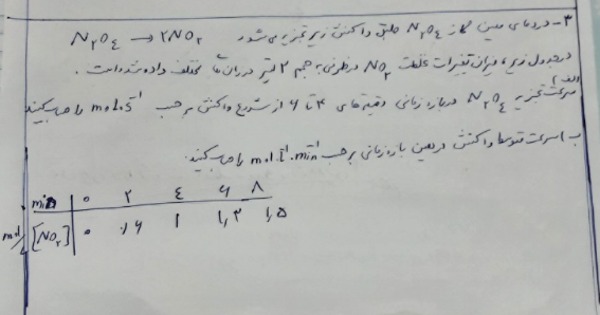 ۳- در دمای معین گاز N₂O₄ طبق واکنش زیر تجزیه می شود N₂O₄ → ۲NO₂
در جدول زیر، میزان تغییرات غلظت NO₂ در ظرفی به حجم ۲ لیتر در زمان های مختلف داده شده است.
الف) سرعت تجزیه N₂O₄ در بازه زمانی دقیقه های ۴ تا ۶ از شروع واکنش بر حسب mol.s⁻¹ را حساب کنید
ب) سرعت متوسط واکنش در همین بازه زمانی بر حسب mol.L⁻¹.min⁻¹ را حساب کنید.
min ۰ ۲ ٤ ۶ ۸
mol/L [NO₂] ۰ ۰/۶ ۱ ۱,۳ ۱,۵